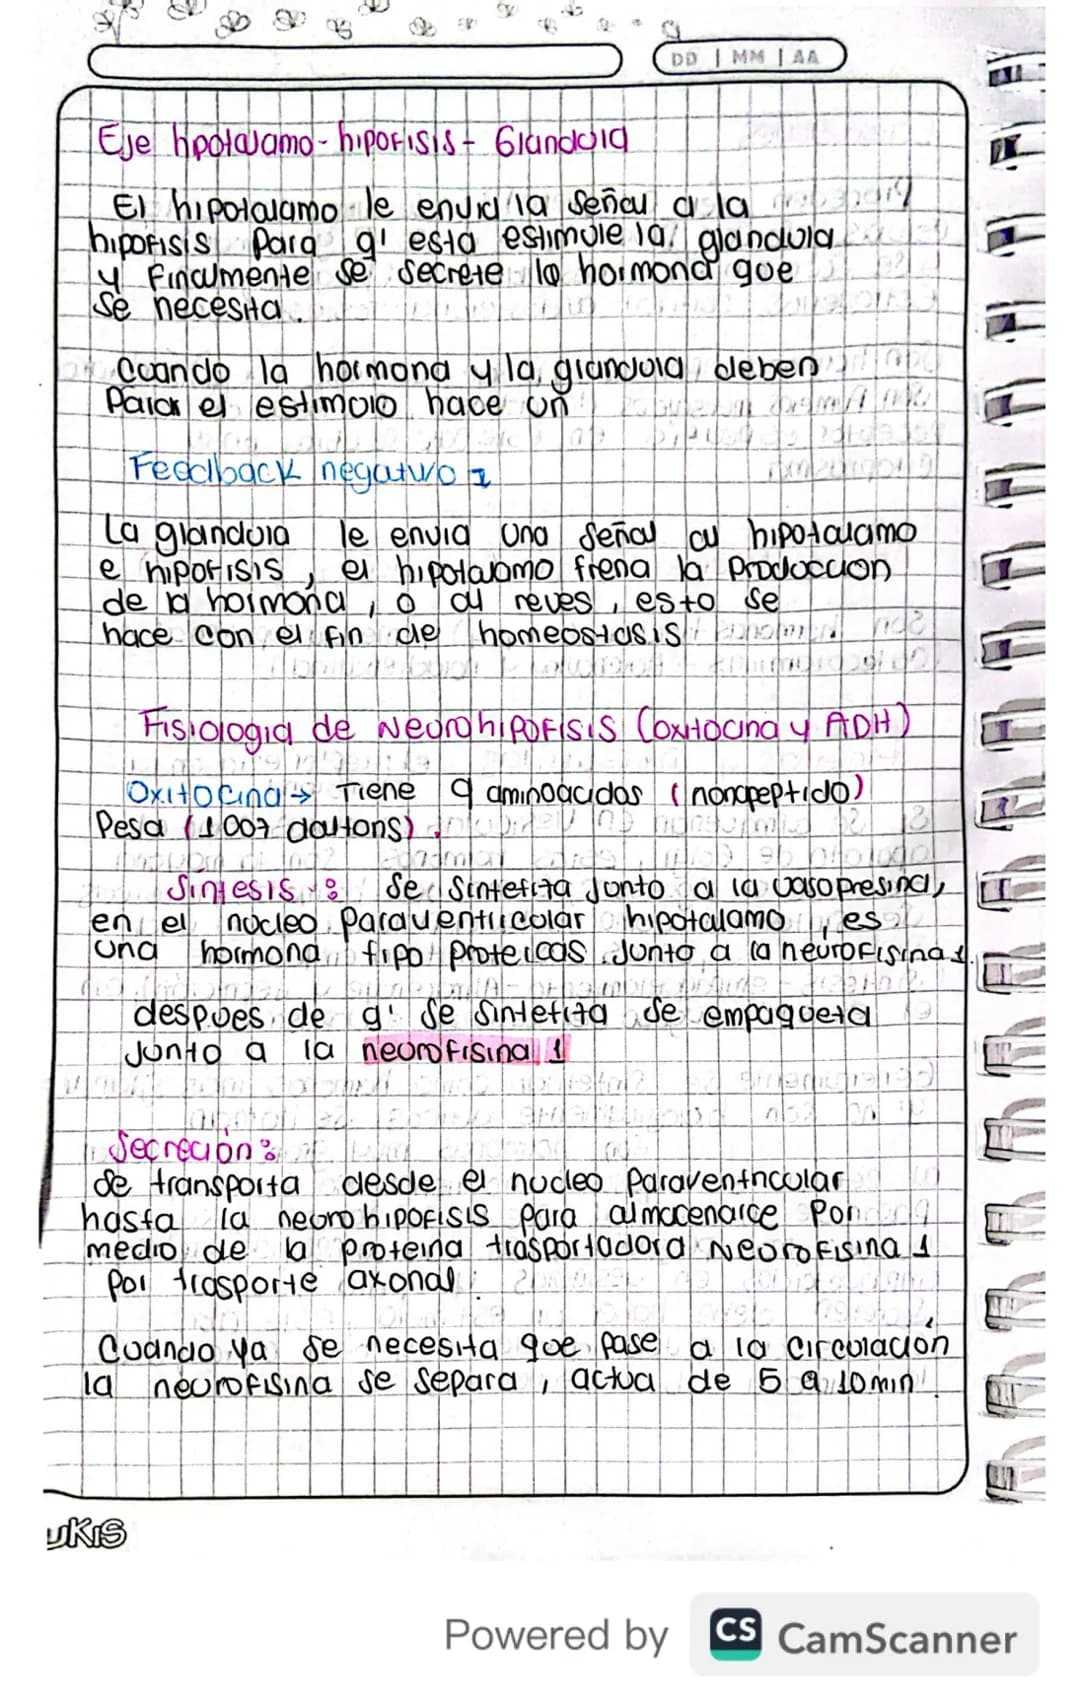 DD | MM | AA
Eje hpotalamo - hipofisis - Glandula
El hipotalamo le envia la señal a la
hipofisis para q' esta estimule la glandula
y finalmente se secrete la hormona que
se necesita.
Cuando la hormona y la glandula deben
parar el estimulo hace un
Feedback negativo
La glandula le envia una señal al hipotalamo
e hipofisis, el hipotalamo frena la produccion
de la hormona, o al reves, esto se
hace con el fin de homeostasis
Fisiologia de Neurohipofisis (oxitocina y ADH)
Oxitocina → Tiene 9 aminoacidos (nonapeptido)
Pesa (1007 daltons).
Sintesis: Se sintetiza junto a la vasopresina,
en el nucleo paraventricular hipotalamo, es
una hormona tipo proteicas junto a la neurofisina 1.
despues de q' se sintetiza se empaqueta
junto a la neurofisina 1
Secreción:
de transporta desde el nucleo paraventricular
hasta la neurohipofisis para almacenarce Por
medio de la proteina trasportadora Neurofisina 1
por trasporte axonal.
Cuando ya se necesita que pase a la circulación
la neurofisina se separa, actua de 5 a 10 min
UKIS
Powered by CS CamScanner